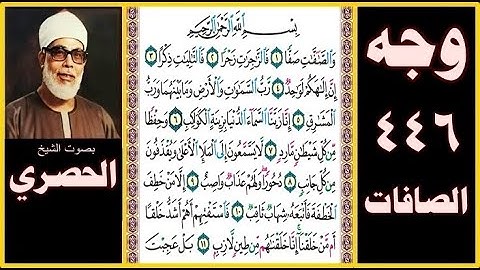 بِسْمِ اللَّهِ الرَّحْمَٰنِ الرَّحِيمِ
وَالصَّافَّاتِ صَفًّا ١ فَالزَّاجِرَاتِ زَجْرًا ٢ فَالتَّالِيَاتِ ذِكْرًا ٣
إِنَّ إِلَٰهَكُمْ لَوَاحِدٌ ٤ رَبُّ السَّمَاوَاتِ وَالْأَرْضِ وَمَا بَيْنَهُمَا وَرَبُّ
الْمَشَارِقِ ٥ إِنَّا زَيَّنَّا السَّمَاءَ الدُّنْيَا بِزِينَةٍ الْكَوَاكِبِ ٦ وَحِفْظًا
مِّن كُلِّ شَيْطَانٍ مَّارِدٍ ٧ لَّا يَسَّمَّعُونَ إِلَى الْمَلَإِ الْأَعْلَىٰ وَيُقْذَفُونَ
مِن كُلِّ جَانِبٍ ٨ دُحُورًا وَلَهُمْ عَذَابٌ وَاصِبٌ ٩ إِلَّا مَنْ خَطِفَ
الْخَطْفَةَ فَأَتْبَعَهُ شِهَابٌ ثَاقِبٌ ١٠ فَاسْتَفْتِهِمْ أَهُمْ أَشَدُّ خَلْقًا
أَم مَّنْ خَلَقْنَا إِنَّا خَلَقْنَاهُم مِّن طِينٍ لَّازِبٍ ١١ بَلْ عَجِبْتَ
وجه
٤٤٦
الصافات
بصوت الشيخ
الحصري